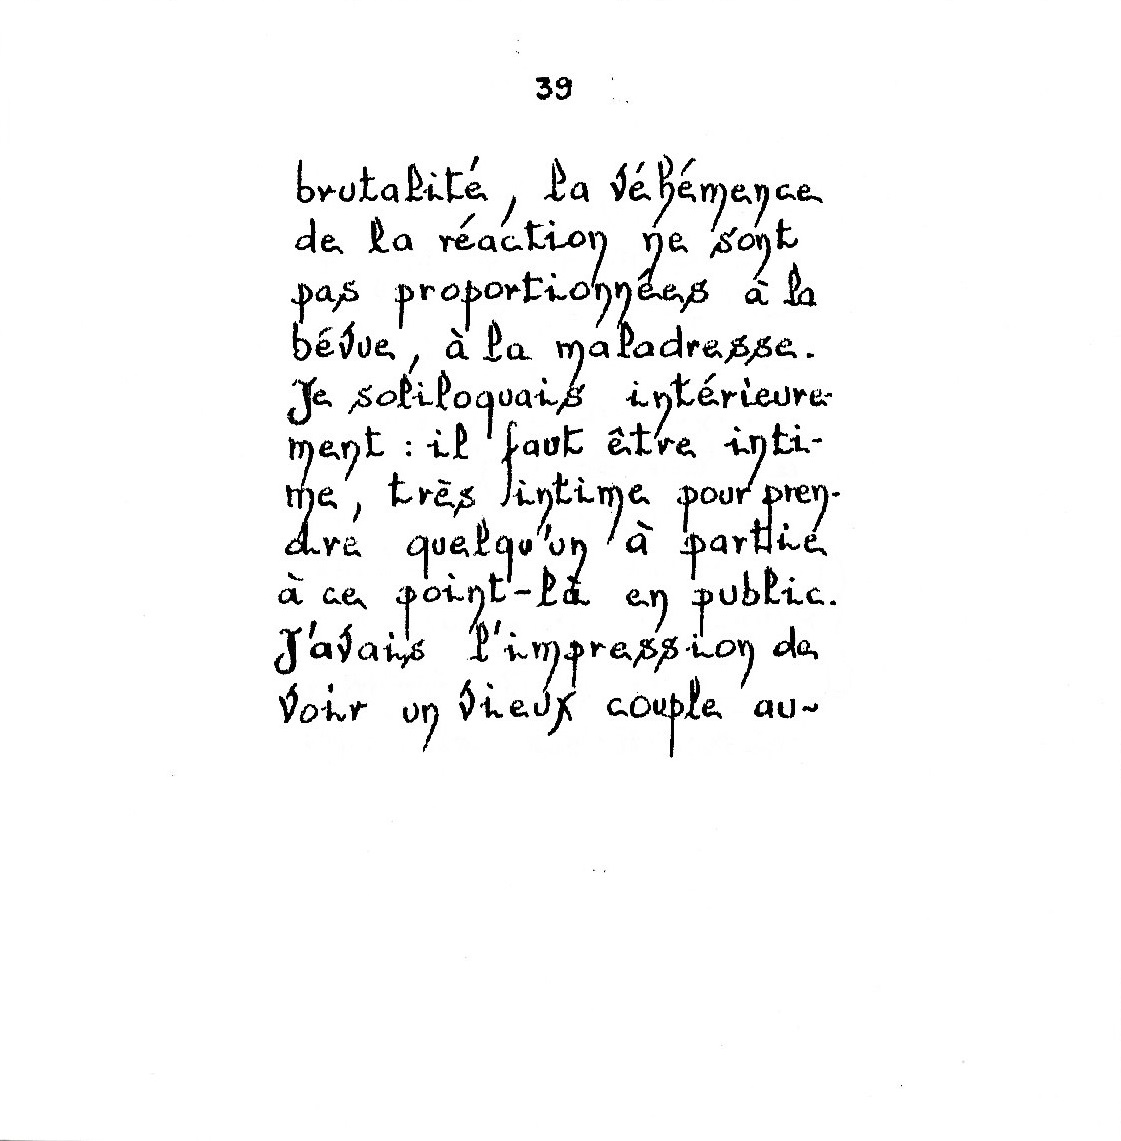 39
brutalité, la véhémence
de la réaction ne sont
pas proportionnées à la
bévue, à la maladresse.
Je soliloquais intérieure-
ment : il faut être inti-
me, très intime pour pren-
dre quelqu'un à partie
à ce point-là en public.
J'avais l'impression de
voir un vieux couple au~